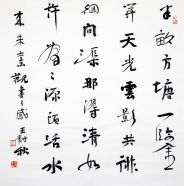 半畝方塘一鑑
开天光雲影共徘
徊問渠那得清如
許為有源頭活水
来朱熹觀書有感王秋